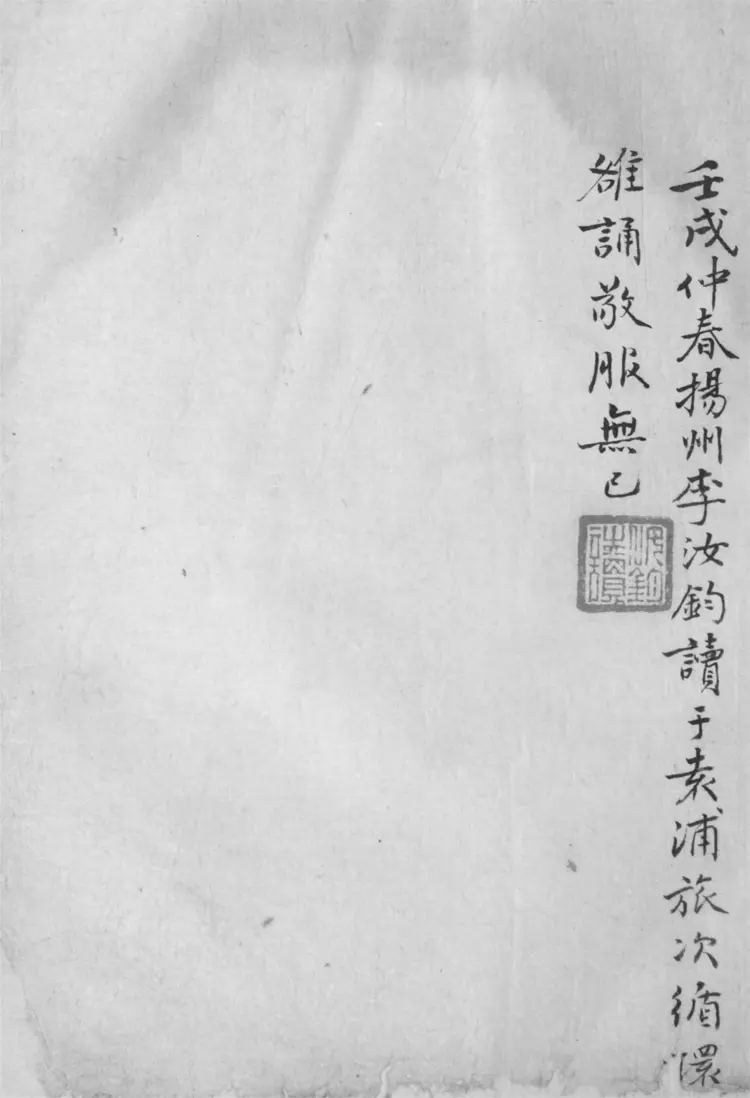 壬戌仲春揚州李汝鈞讀于袁浦旅次循環
雒誦敬服無已